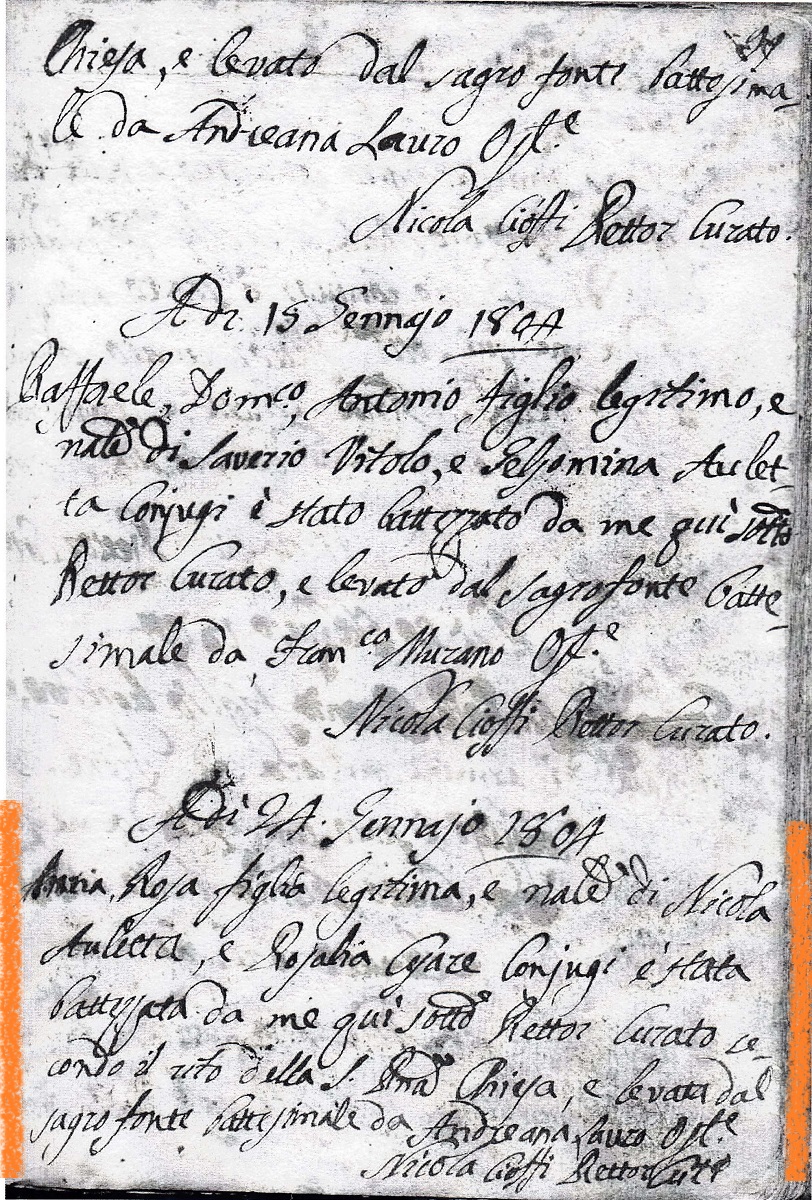 Chiesa, e levato dal sagro fonte battesima-
le da Andreana Lauro Ost.e
Nicola Cioffi Rettor Curato.
Adì 15 Gennajo 1804
Raffaele, Dom.co, Antonio figlio legitimo, e
nale di Saverio Vitolo, e Gelsomina Aulet-
ta Conjugi è stato battezzato da me quì sotto
Rettor Curato, e levato dal sagro fonte batte-
simale da Fran.co Murano Ost.e
Nicola Cioffi Rettor Curato.
Adì 24. Gennajo 1804
Rosa figlia legitima, e nale di Nicola
Auletta, e Rosalia Conjugi è stata
battezzata da me quì sotto Rettor Curato se-
condo il rito della S. Chiesa, e levata dal
sagro fonte battesimale da Andreana Lauro Ost.e
Nicola Cioffi Rettor